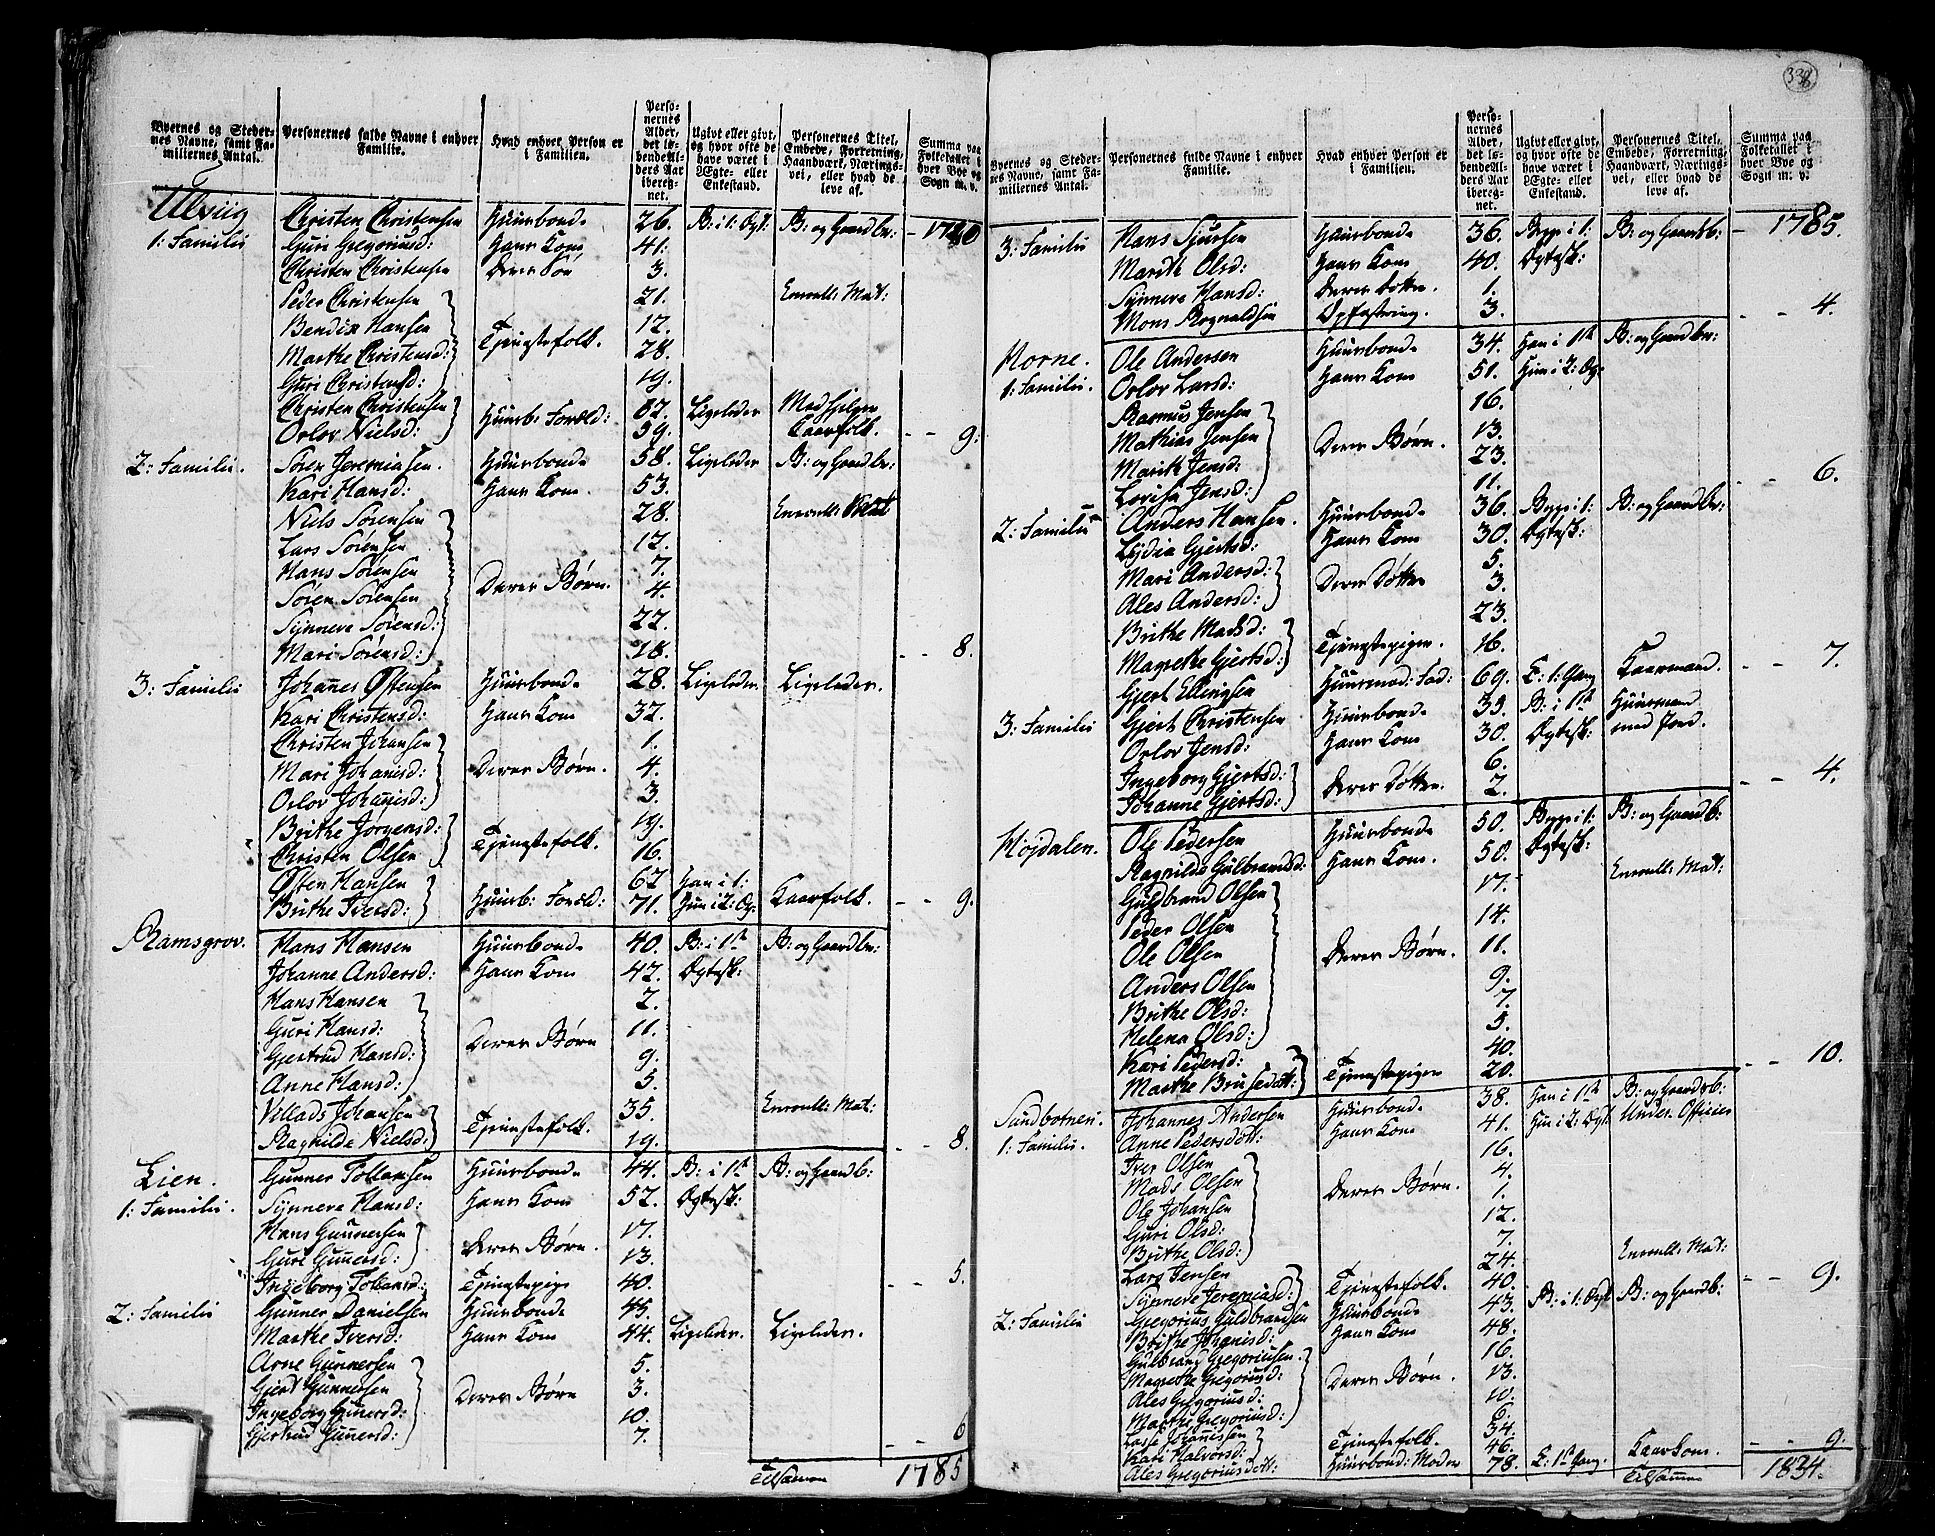 338
Byernes og Steder-
nes Navne, samt Fa-
miliernes Antal.
Personernes fulde Navne i enhver
Familie.
Hvad enhver Person er
i Familien.
Perso-
nernes
Alder,
det lø-
bende Al-
ders Aar
ibereg-
net.
Ugivt eller givt,
og hvor ofte de
have været i
Ægte- eller
Enkestand.
Personernes Titel,
Embede, Forretning,
Haandværk, Nærings-
vei, eller hvad de
leve af.
Summa paa
Folketallet i
hver Bye og
Sogn m. v.
Ulsvig Christen Christensen Huusbonde 26. B: i 1: Ægt: B: og Gaardbr: 1740
1: Familie Guri Gregoriusd: Hans Kone 41.
Christen Christensen Deres Søn 3.
Peder Christensen 21. Enroull: Mat:
Bendix Hansen Tjenestefolk. 12.
Marthe Christensd: 28.
Guri Christensd: 19.
Christen Christensen Huusb: Foræld: 62. Ligeledes Med
Orlov Nielsd: 59. Kaarfolk. 9.
2: Familie. Søren Jeremiasen. Huusbonde 58. Ligeledes B: og Gaardbr:
Kari Hansd: Hans Kone. 53.
Niels Sørensen 28. Enroull: Mat
Lars Sørensen 12.
Hans Sørensen Deres Børn. 7.
Søren Sørensen 4.
Synneve Sørensd: 22.
Mari Sørensd: 18. 8.
3: Familie Johannes Østensen Huusbonde 28. Ligeledes Ligeledes.
Kari Christensd: Hans Kone 32.
Christen Johansen 1.
Mari Johannisd: Deres Børn. 4.
Orlov Johannisd: 3.
Brithe Jørgensd: Tjenestefolk. 19.
Christen Olsen 16.
Østen Hansen Huusb: Foræld: 67 Han i 1:
Brithe Iversd: 71. Hun i 2: Æg. Kaarfolk. 9.
Ramsgrov. Hans Hansen Huusbonde 40. B: i 1te B: og Gaardbr:
Johanne Andersd: Hans Kone 42. Ægtesk:
Hans Hansen 2.
Guri Hansd: Deres Børn 11.
Gjertrud Hansd: 9.
Anne Hansd: 5.
Villads Johansen Tjenestefolk. 35. Enroull: Mat:
Ragnilde Nielsd: 19. 8.
Lien. Gunner Tollevsen Huusbonde 44. B: i 1te B: og Gaardb:
1: Familie. Synneve Hansd: Hans Kone 52. Ægtesk:
Hans Gunnersen Deres Børn. 17.
Guri Gunnersd: 13.
Ingeborg Tollevsd: Tjenestepige 40. 5.
2: Familie Gunner Danielsen Huusbonde 45.
Marthe Iversd: Hans Kone 44. Ligeledes. Ligeledes.
Arne Gunnersen 5.
Gjert Gunnersen Deres Børn 3.
Ingeborg Gunersd: 10.
Gjertrud Gunersd: 7. 6
Tilsamen 1785
Byernes og Steder-
nes Navne, samt Fa-
miliernes Antal.
Personernes fulde Navne i enhver
Familie.
Hvad enhver Person er
i Familien.
Perso-
nernes
Alder,
det lø-
bende Al-
ders Aar
ibereg-
net.
Ugivt eller givt,
og hvor ofte de
have været i
Ægte- eller
Enkestand.
Personernes Titel,
Embede, Forretning,
Haandværk, Nærings-
vei, eller hvad de
leve af.
Summa paa
Folketallet i
hver Bye og
Sogn m. v.
3: Familie Hans Sjursen Huusbonde 36. Begge i 1: B: og Gaardb: 1785.
Marith Olsd: Hans Kone 40. Ægtesk:
Synneve Hansd: Deres Dotter. 1.
Mons Rognaldsen Opfostring. 3. 4.
Horne. Ole Andersen Huusbonde 34. Han i 1te B: og Gaardbr:
1: Familie. Orlov Larsd: Hans Kone 51. Hun i 2: Æg:
Rasmus Jensen 16.
Mathias Jensen Deres Børn. 13.
Marith Jensd: 23.
Lovisa Jensd: 11. 6.
2: Familie Anders Hansen. Huusbonde 36. Begge i 1: B: og Gaardbr:
Lydia Gjertsd: Hans Kone 30. Ægtesk:
Mari Andersd: Deres Døttre 5.
Ales Andersd: 3.
Brithe Madsd: Tjenestepiger. 23.
Magrethe Gjertsd: 16.
Gjert Ellingsen Huusmod: Fad: 69. E: 1: Gang Kaarmand. 7.
3: Familie Gjert Christensen Huusbonde 39. B: i 1te Huusmand
Orlov Jensd: Hans Kone 30. Ægtesk: med Jord.
Ingeborg Gjertsd: Deres Døttre. 6.
Johanne Gjertsd: 2. 4.
Højdalen. Ole Pedersen Huusbonde 50. Begge i 1: B: og Gaardb:
Ragnilde Gulbrandsd: Hans Kone. 50. Ægtesk:
Gulbrand Olsen 17. Enroull: Mat:
Peder Olsen 14.
Ole Olsen Deres Børn. 11.
Anders Olsen 9.
Brithe Olsd: 7.
Helena Olsd: 5.
Kari Pedersd: Tjenestepiger 40.
Marthe Brusedott: 20. 10.
Sandbotnen. Johannes Andersen Huusbonde 38. Han i 1te B: og Gaardb:
1: Familie. Anne Pedersdott: Hans Kone 41. Hun i 2: Ægt Under Officier
Iver Olsen 16.
Mads Olsen Deres Børn. 4.
Ole Johansen 1.
Guri Olsd: 12.
Brithe Olsd: 7.
Lars Jensen Tjenestefolk. 24. Enroull: Mat:
Synneve Jeremiasd: 40. 9.
2: Familie Gregorius Guldbrandsen Huusbonde 43. B: i 1: Ægt B: og Gaardb:
Brithe Johannisd: Hans Kone 48.
Gulbrand Gregoriusen. 16.
Magrethe Gregoriusd: Deres Børn. 13.
Ales Gregoriusd: 10.
Marthe Gregoriusd: 6.
Lasse Johannissen Tjenestefolk. 34.
Kari Halvorsd: 46.
Ales Gregoriusdott: Huusbond: Moder 78. E: 1te Gang. Kaarkone. 9.
Tilsamen 1834.